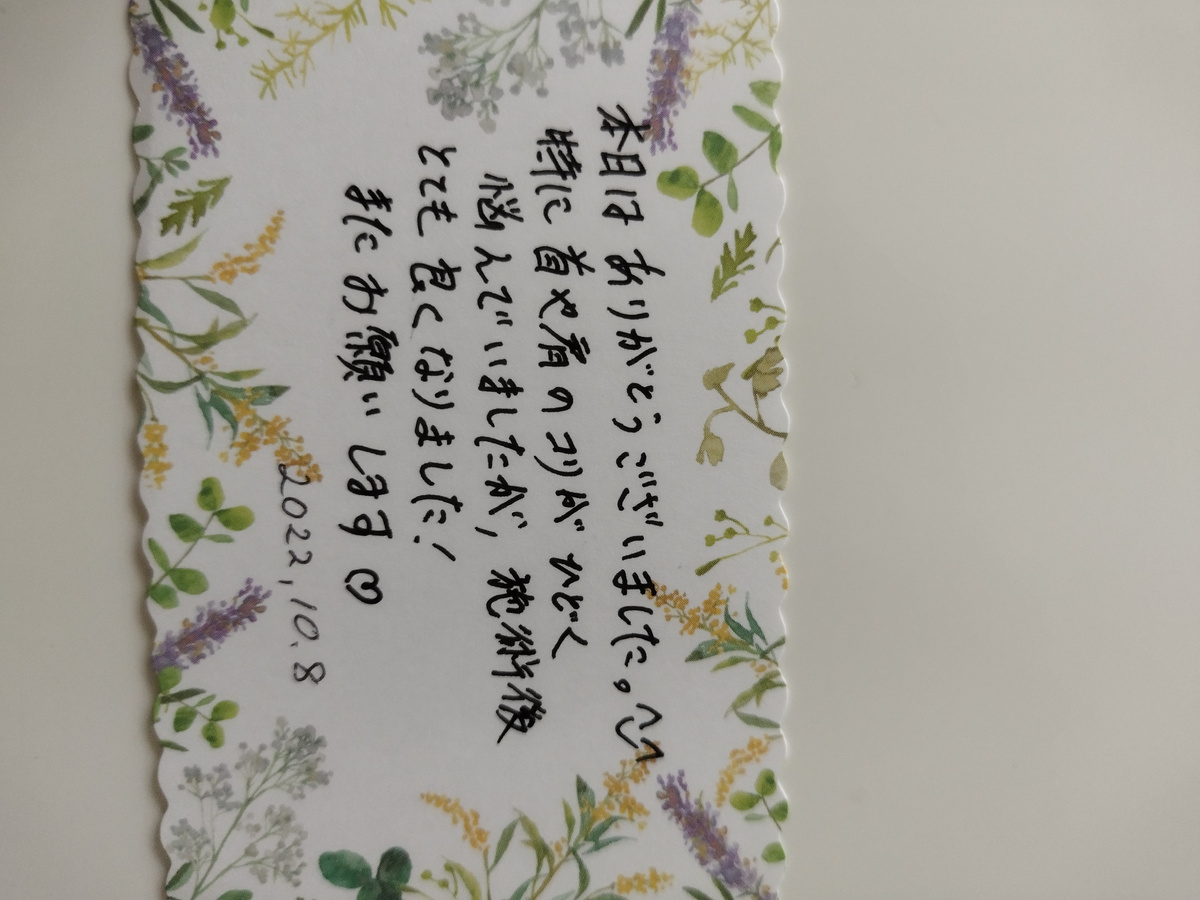 本日は ありがとうございました。^^
特に 首や肩のコリが ひどく
悩んでいましたが, 施術後
とても 良くなりました!
また お願い します ♡
2022, 10. 8